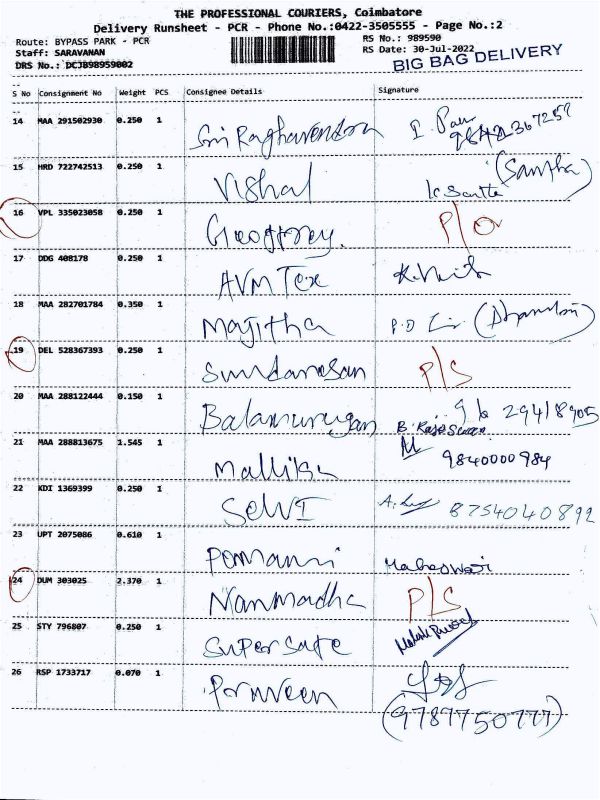 THE PROFESSIONAL COURIERS, Coimbatore
Delivery Runsheet - PCR - Phone No.:0422-3505555 - Page No.:2
Route: BYPASS PARK - PCR RS No.: 989590
Staff: SARAVANAN RS Date: 30-Jul-2022
DRS No.: DCJB98959002 BIG BAG DELIVERY
S No Consignment No Weight PCS Consignee Details Signature
14 MAA 291502930 0.250 1 Sri Raghavendra
15 HRD 722742513 0.250 1 Vishal (Santha)
16 VPL 335023058 0.250 1 Geoffrey.
17 DDG 408178 0.250 1 AVM Tex
18 MAA 282701784 0.350 1 Majitha
19 DEL 528367393 0.250 1 Sundarasan P/S
20 MAA 288122444 0.150 1 Balamurugan
21 MAA 288813675 1.545 1 Mallika 9840000984
22 KDI 1369399 0.250 1 SelVI 8754040892
23 UPT 2075086 0.610 1 Maheswari
24 DUM 303025 2.370 1 Manmadha P/S
25 STY 796807 0.250 1 Super Safe
26 RSP 1733717 0.070 1 Parveen
(9787750777)